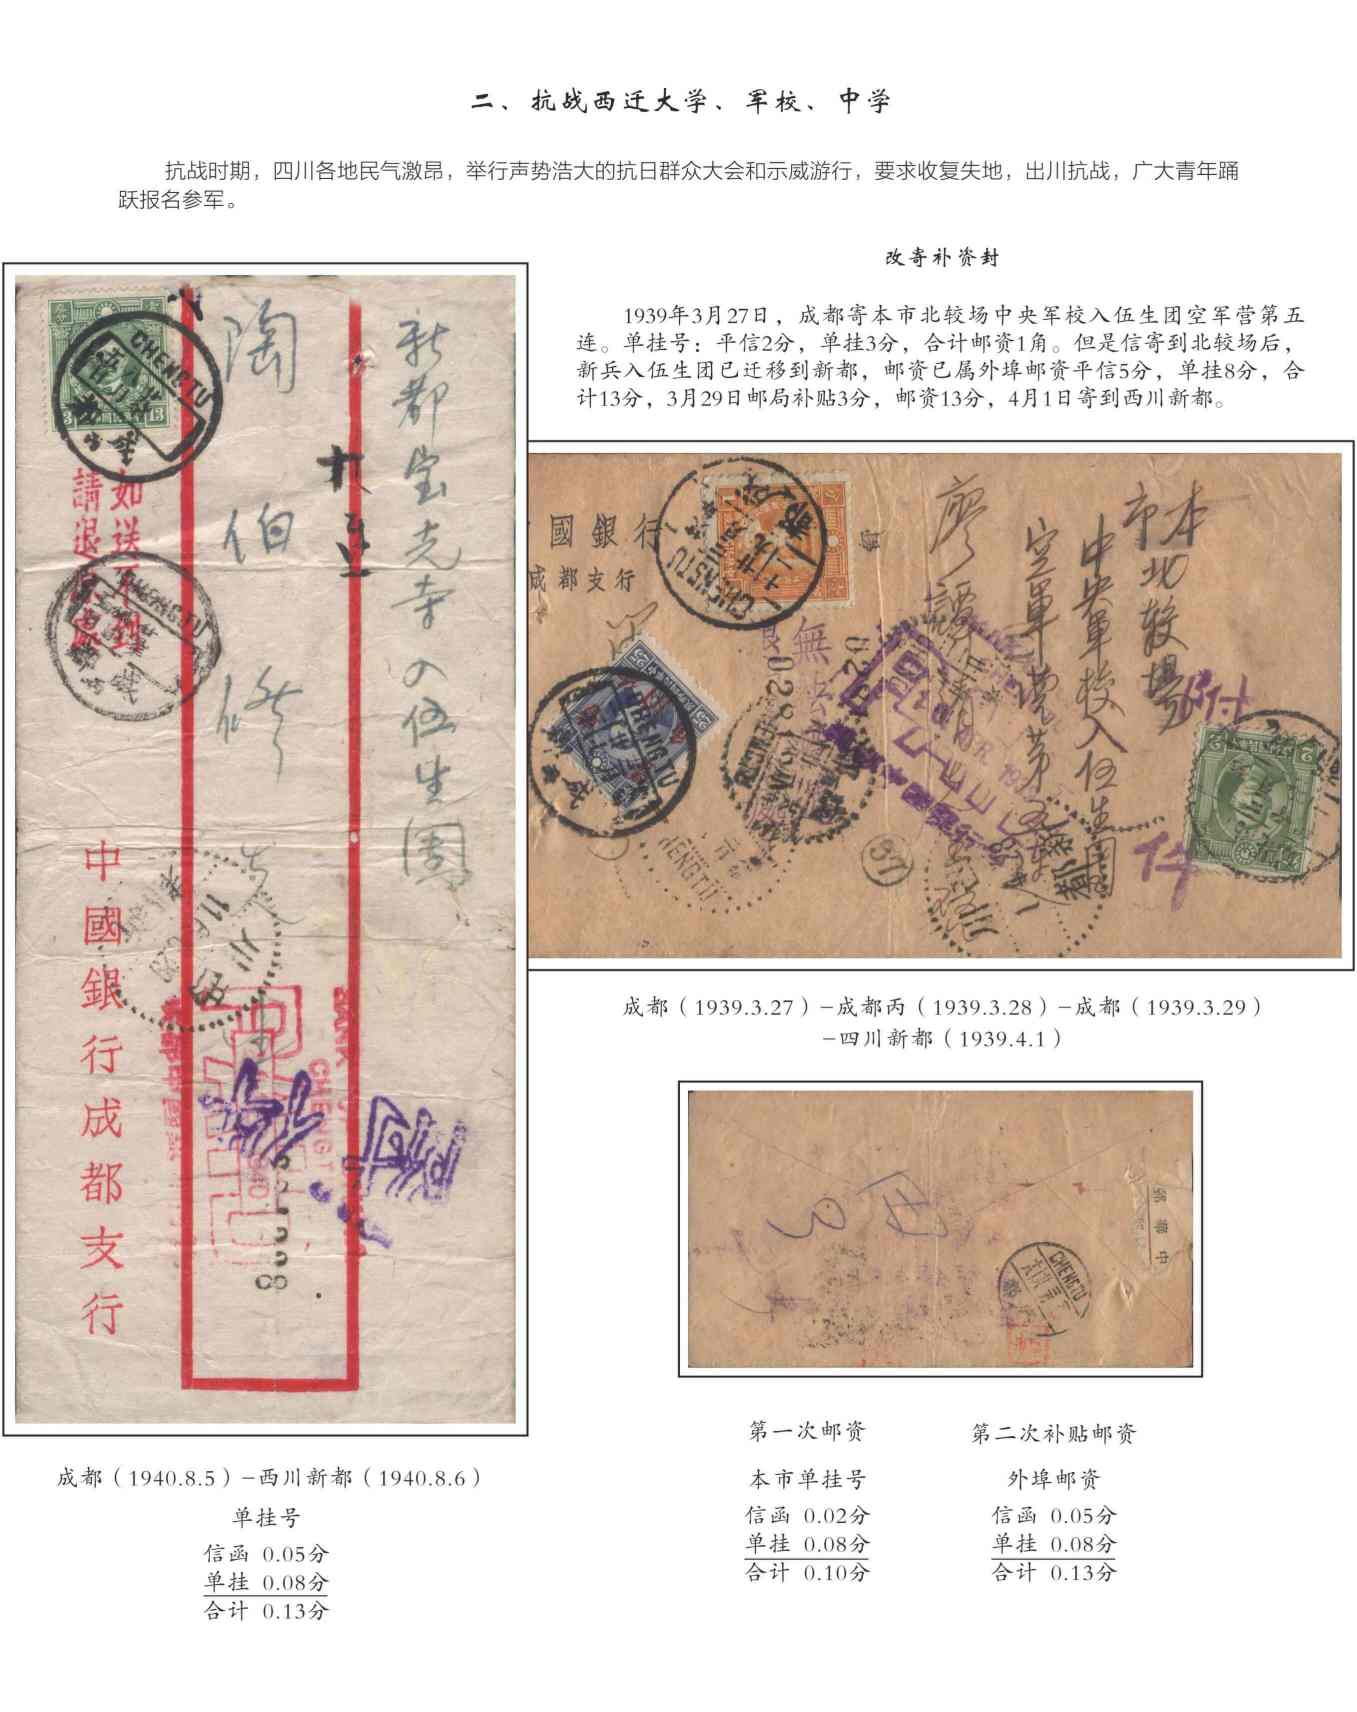 二、抗战西迁大学、军校、中学
抗战时期，四川各地民气激昂，举行声势浩大的抗日群众大会和示威游行，要求收复失地，出川抗战，广大青年踊
跃报名参军。
改寄补资封
1939年3月27日，成都寄本市北较场中央军校入伍生团空军营第五
连。单挂号：平信2分，单挂3分，合计邮资1角。但是信寄到北较场后，
新兵入伍生团已迁移到新都，邮资已属外埠邮资平信5分，单挂8分，合
计13分，3月29日邮局补贴3分，邮资13分，4月1日寄到西川新都。
新都宝光寺入伍生團
陶伯修
如送不到
請退原處
中國銀行成都支行
CHENGTU
13
CHENGTU
國銀行
成都支行
本市北較場
中央軍校入伍生團
空軍營第五連
廖譯清
附
件
CHENGTU
CHENGTU
37
2
成都（1939.3.27）－成都丙（1939.3.28）－成都（1939.3.29）
－四川新都（1939.4.1）
CHENGTU
成都（1940.8.5）－西川新都（1940.8.6）
单挂号
信函 0.05分
单挂 0.08分
合计 0.13分
第一次邮资
本市单挂号
信函 0.02分
单挂 0.08分
合计 0.10分
第二次补贴邮资
外埠邮资
信函 0.05分
单挂 0.08分
合计 0.13分